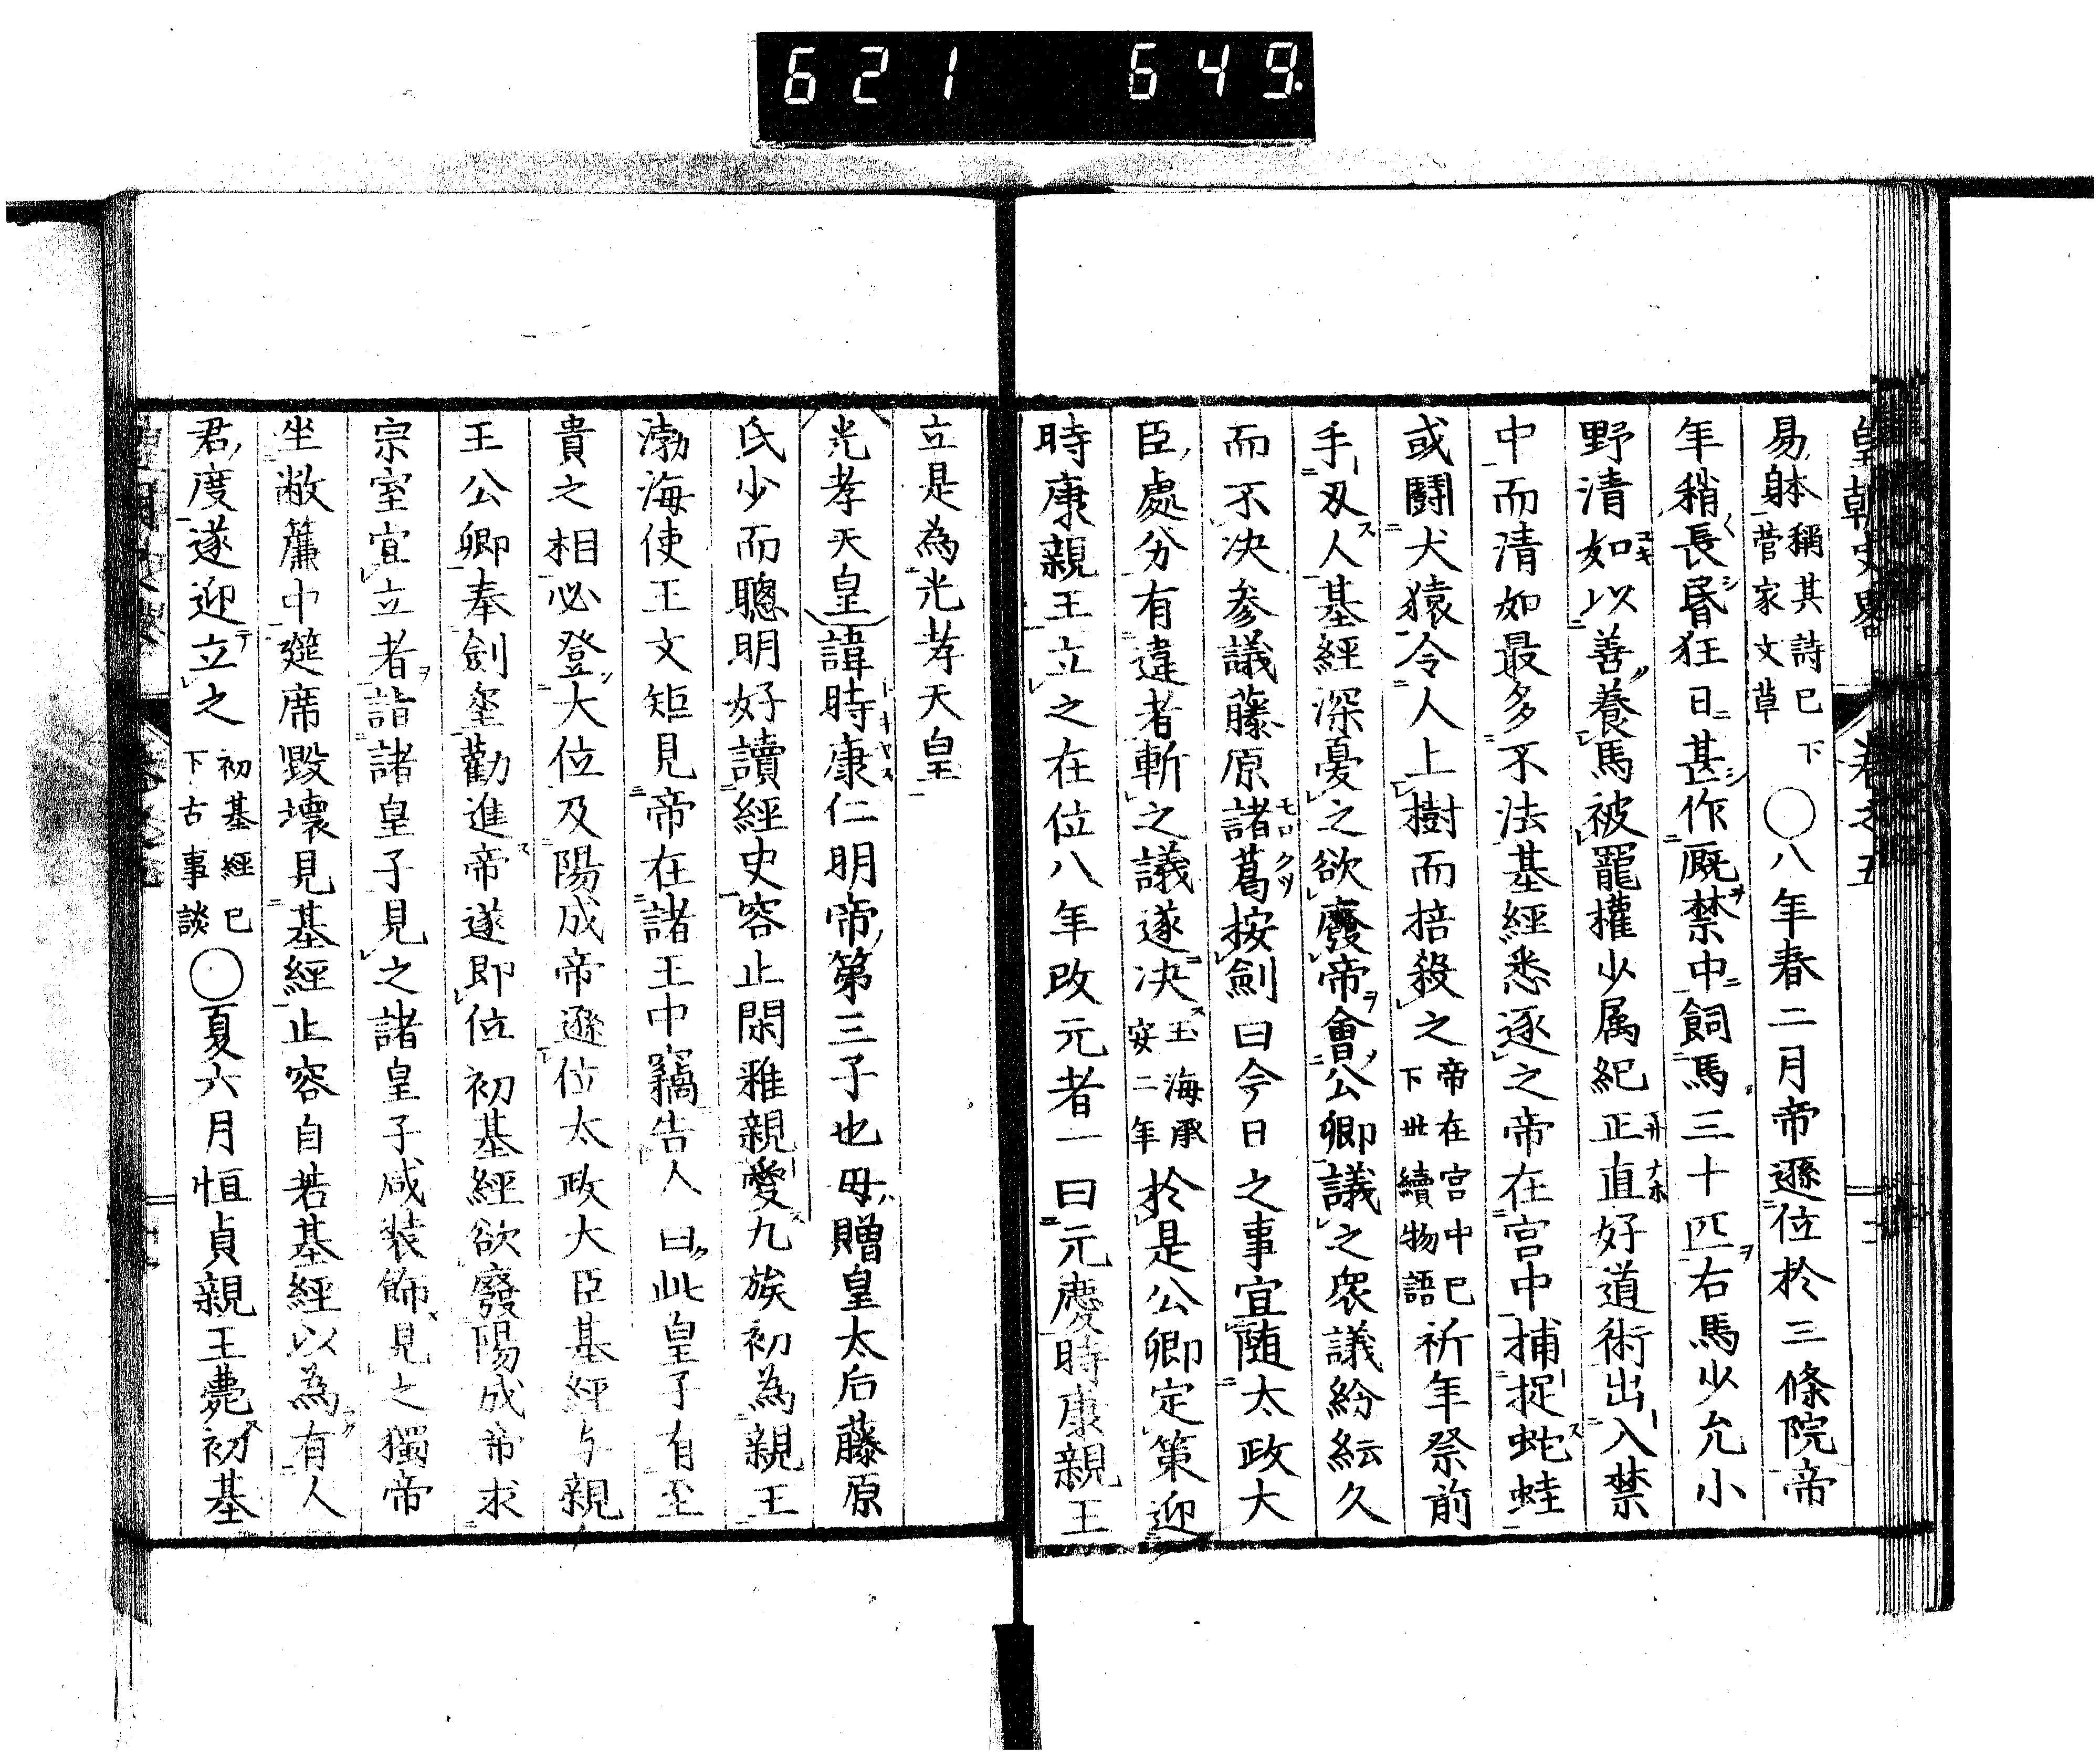 621 649
皇朝史畧 卷之五
易躰稱其詩已下菅家文草○八年春二月帝遜位於三條院帝
年稍長昏狂日甚作厩禁中飼馬三十匹右馬少允小
野清如以善養馬被寵權少属紀正直好道術出入禁
中而清如最多不法基經悉逐之帝在宮中捕捉蛇蛙
或鬪犬猿令人上樹而掊殺之帝在宮中已下世續物語祈年祭前
手刃人基經深憂之欲廢帝會公卿議之衆議紛紜久
而不决参議藤原諸葛按劍曰今日之事宜随太政大
臣處分有違者斬之議遂决玉海承安二年於是公卿定策迎
時康親王立之在位八年改元者一曰元慶時康親王
立是為光孝天皇
光孝天皇諱時康仁明帝第三子也母贈皇太后藤原
氏少而聰明好讀經史容止閑雅親愛九族初為親王
渤海使王文矩見帝在諸王中竊告人曰此皇子有至
貴之相必登大位及陽成帝遜位太政大臣基經与親
王公卿奉劍璽勸進帝遂即位初基經欲廢陽成帝求
宗室宜立者詣諸皇子見之諸皇子咸装飾見之獨帝
坐敝簾中筵席毀壊見基經止容自若基經以為有人
君度遂迎立之初基經已下古事談○夏六月恒貞親王薨初基